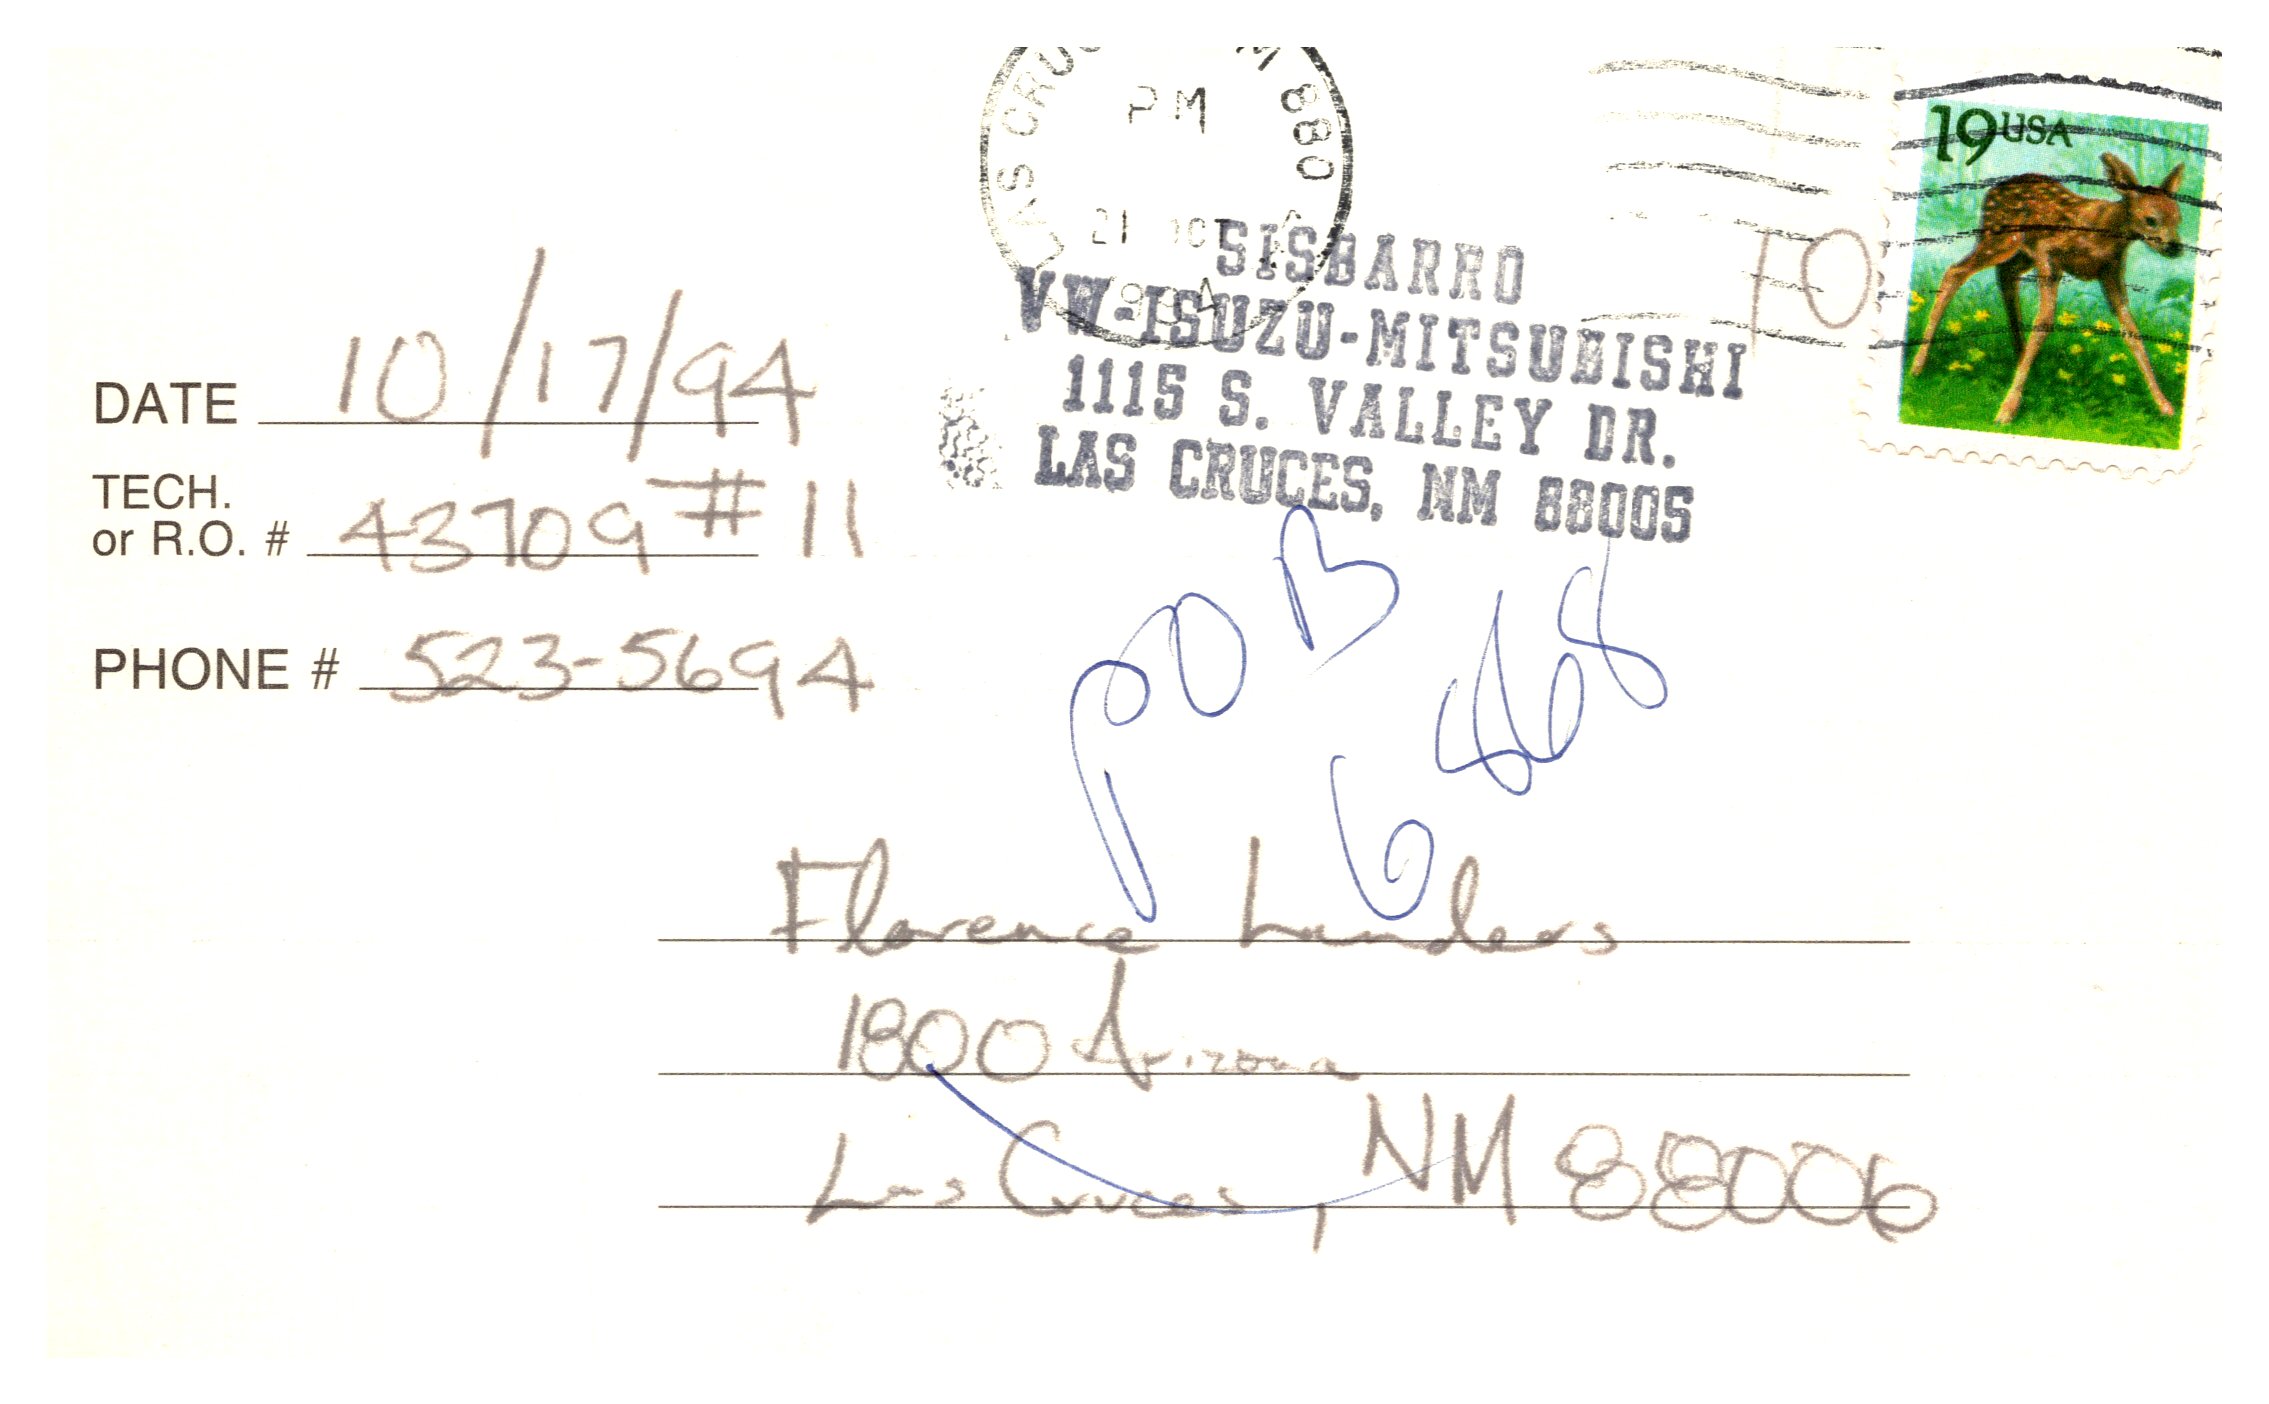 LAS CRUC M 880
PM
21 OCT
19 USA
10
SISBARRO
VW-ISUZU-MITSUBISHI
1115 S. VALLEY DR.
LAS CRUCES, NM 88005
DATE 10/17/94
TECH.
or R.O. # 43709 #11
PHONE # 523-5694
POB
6468
Florence Lunders
1800 Arizona
Las Cruces, NM 88006